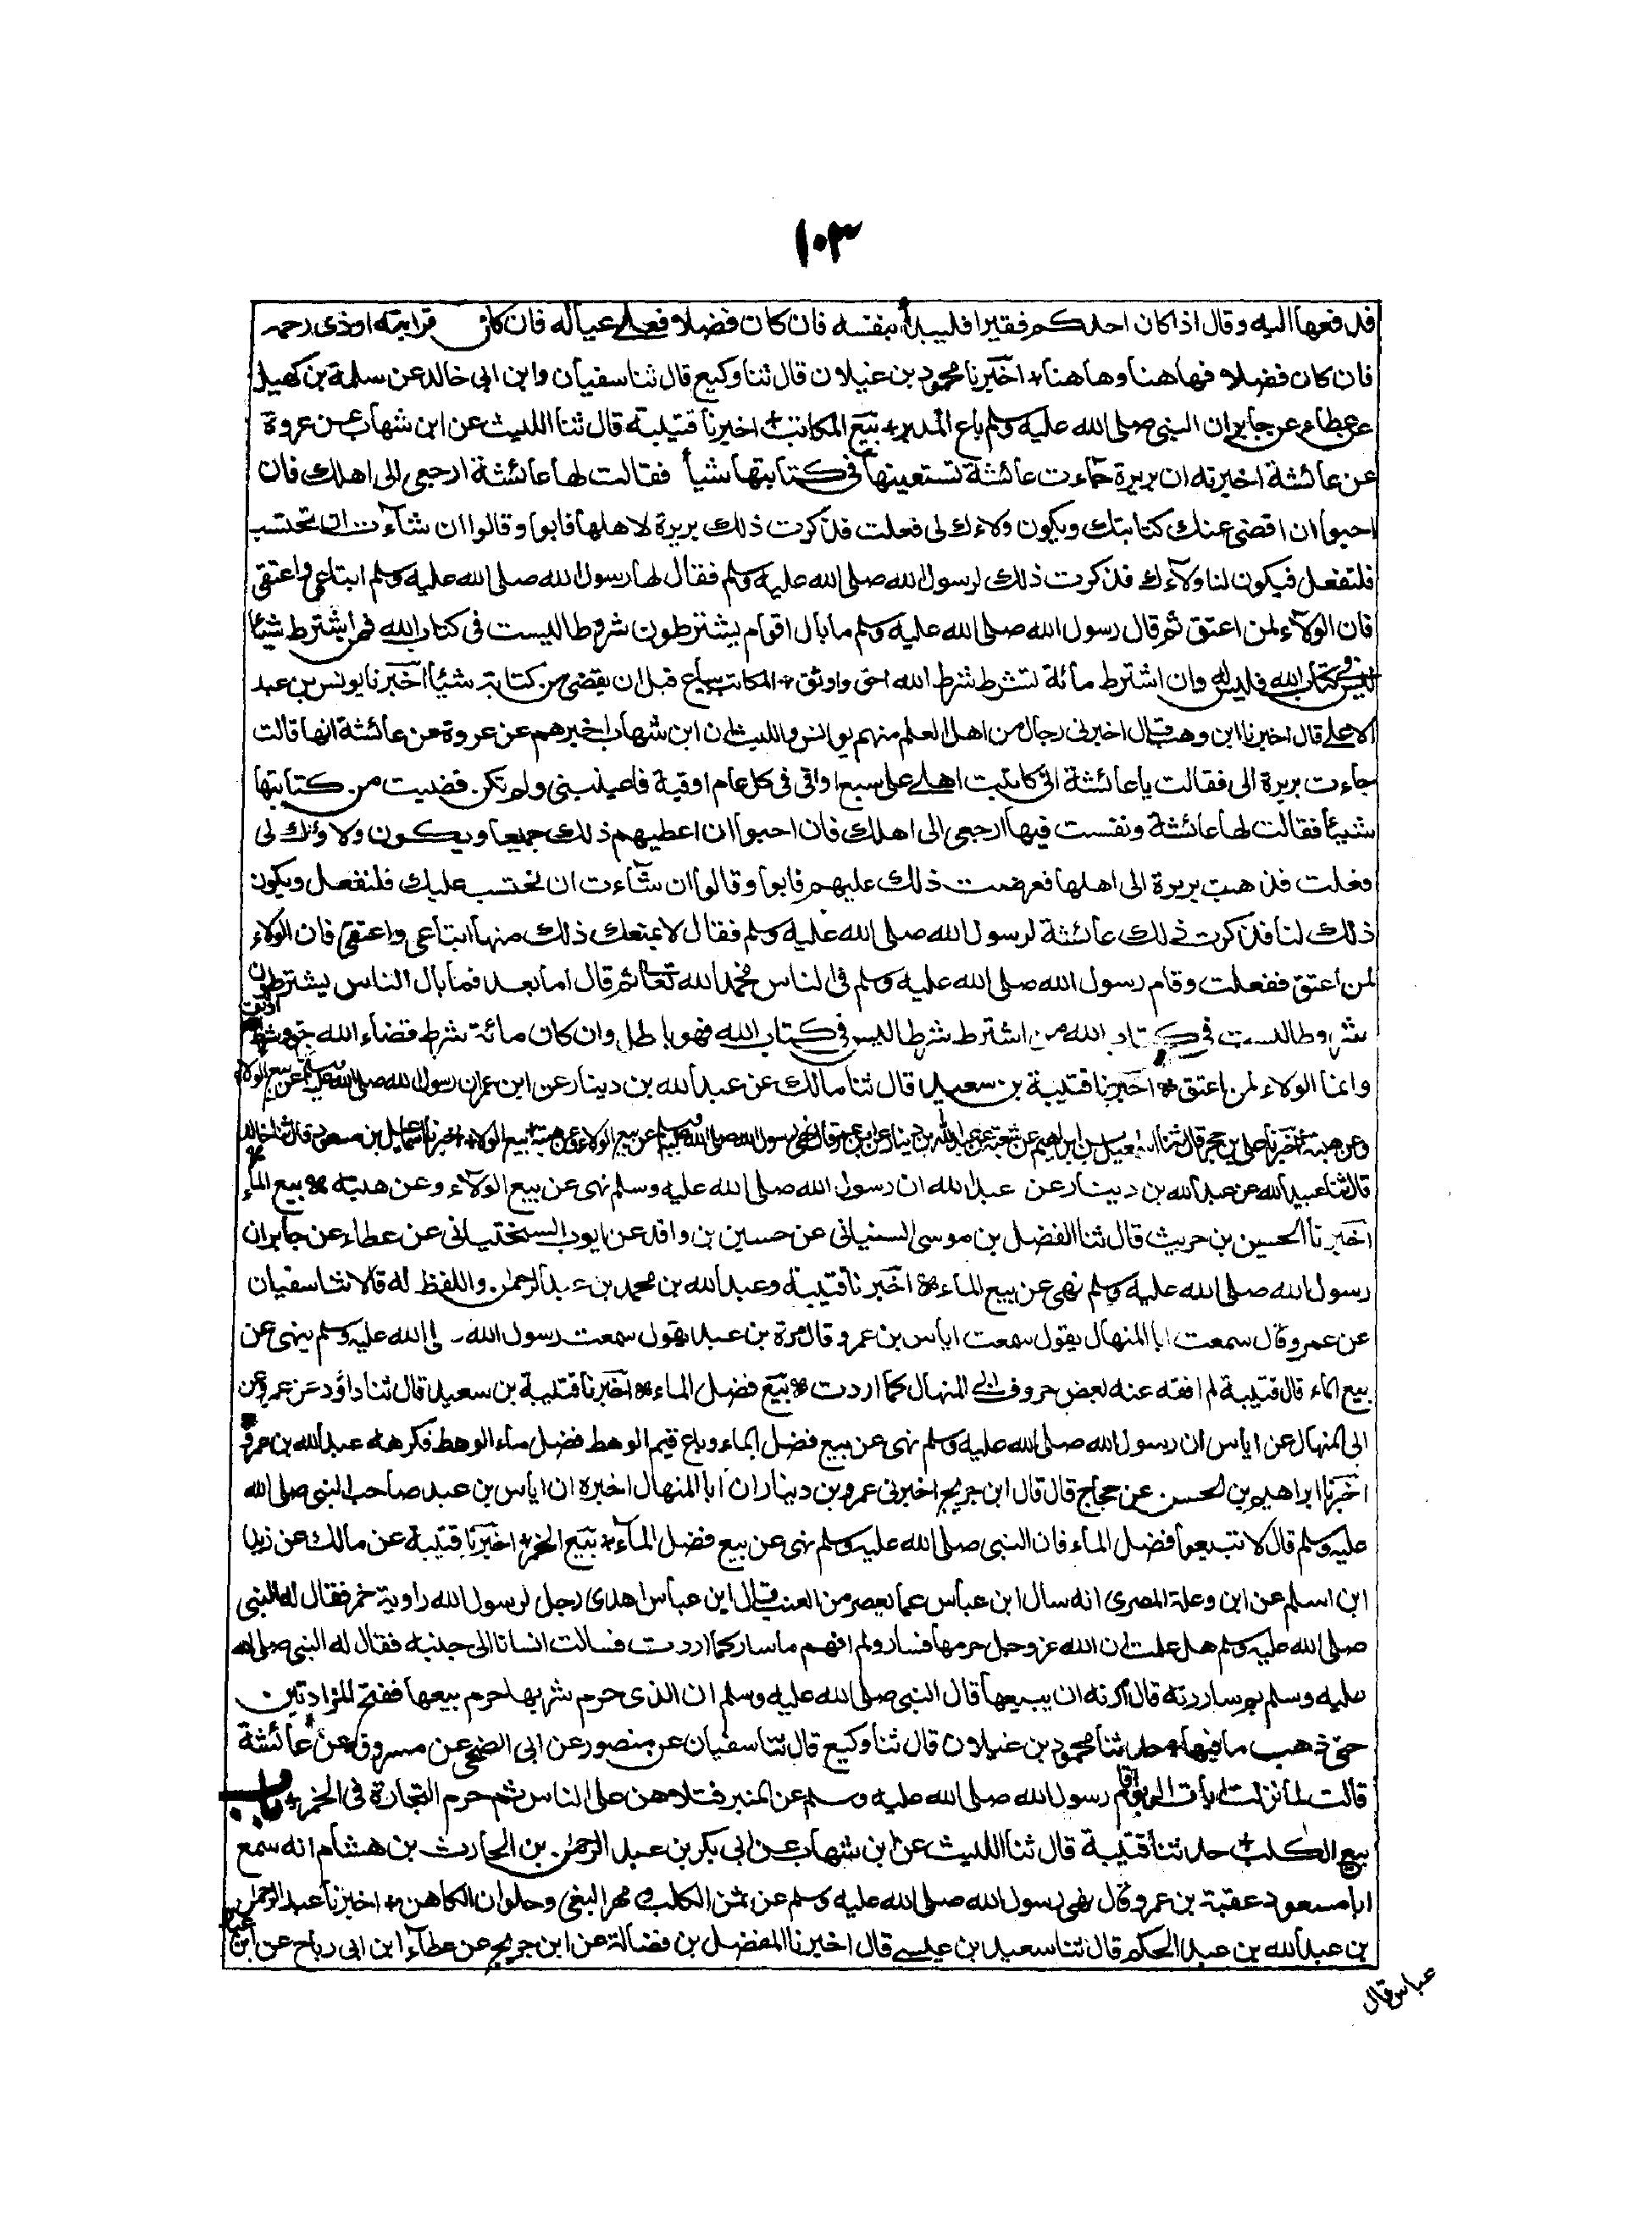 ١٠٣
فدفعها اليه وقال اذا كان احدكم فقيرا فليبدأ بنفسه فان كان فضلا فعلى عياله فان كان قرابته او ذى رحمه
فان كان فضلا فهاهنا وهاهنا + اخبرنا محمود بن غيلان قال ثنا وكيع قال ثنا سفيان وابن ابى خالد عن سلمة بن كهيل
عن عطاء عن جابر ان النبى صلى الله عليه وسلم باع المدبر + بيع المكاتب + اخبرنا قتيبة قال ثنا الليث عن ابن شهاب عن عروة
عن عائشة اخبرته ان بريرة جاءت عائشة تستعينها فى كتابتها شيأ فقالت لها عائشة ارجعى الى اهلك فان
احبوا ان اقضى عنك كتابتك ويكون ولاءك لى فعلت فذكرت ذلك بريرة لاهلها فابوا وقالوا ان شاءت ان تحتسب
فلتفعل فيكون لنا ولاءك فذكرت ذلك لرسول الله صلى الله عليه وسلم فقال لها رسول الله صلى الله عليه وسلم ابتاعى واعتقى
فان الولاء لمن اعتق ثم قال رسول الله صلى الله عليه وسلم ما بال اقوام يشترطون شروطا ليست فى كتاب الله فمن اشترط شيئا
ليس فى كتاب الله فليس له وان اشترط مائة شرط شرط الله احق واوثق + المكاتب يباع قبل ان يقضى من كتابته شيئا اخبرنا يونس بن عبد
الاعلى قال اخبرنا ابن وهب قال اخبرنى رجال من اهل العلم منهم يونس والليث ان ابن شهاب اخبرهم عن عروة عن عائشة انها قالت
جاءت بريرة الى فقالت يا عائشة انى كاتبت اهلى على سبع اواقى فى كل عام اوقية فاعينينى ولم تكن قضيت من كتابتها
شيئا فقالت لها عائشة ونفست فيها ارجعى الى اهلك فان احبوا ان اعطيهم ذلك جميعا ويكون ولاؤك لى
فعلت فذهبت بريرة الى اهلها فعرضت ذلك عليهم فابوا وقالوا ان شاءت ان تحتسب عليك فلتفعل ويكون
ذلك لنا فذكرت ذلك عائشة لرسول الله صلى الله عليه وسلم فقال لا يمنعك ذلك منها ابتاعى واعتقى فان الولاء
لمن اعتق ففعلت وقام رسول الله صلى الله عليه وسلم فى الناس فحمد الله تعالى ثم قال اما بعد فما بال الناس يشترطون
شروطا ليست فى كتاب الله من اشترط شرطا ليس فى كتاب الله فهو باطل وان كان مائة شرط قضاء الله احق وشرط الله اوثق
وانما الولاء لمن اعتق * اخبرنا قتيبة بن سعيد قال ثنا مالك عن عبد الله بن دينار عن ابن عمر ان رسول الله صلى الله عليه وسلم نهى عن بيع الولاء
وعن هبته اخبرنا على بن حجر قال ثنا اسمعيل بن ابراهيم عن شعبة عن عبد الله بن دينار عن ابن عمر قال نهى رسول الله صلى الله عليه وسلم عن بيع الولاء وعن هبته + بيع الولاء + اخبرنا اسماعيل بن مسعود قال ثنا خالد
قال ثنا عبيد الله عن عبد الله بن دينار عن عبد الله ان رسول الله صلى الله عليه وسلم نهى عن بيع الولاء وعن هبته * بيع الماء
اخبرنا الحسين بن حريث قال ثنا الفضل بن موسى السينانى عن حسين بن واقد عن ايوب السختيانى عن عطاء عن جابر ان
رسول الله صلى الله عليه وسلم نهى عن بيع الماء * اخبرنا قتيبة وعبد الله بن محمد بن عبد الرحمن واللفظ له قالا ثنا سفيان
عن عمرو قال سمعت ابا المنهال يقول سمعت اياس بن عمر وقال مرة بن عبد يقول سمعت رسول الله صلى الله عليه وسلم ينهى عن
بيع الماء قال قتيبة لم افقه عنه بعض حروف ابى المنهال كما اردت * بيع فضل الماء * اخبرنا قتيبة بن سعيد قال ثنا داؤد عن عمرو عن
ابى المنهال عن اياس ان رسول الله صلى الله عليه وسلم نهى عن بيع فضل الماء وباع قيم الوهط فضل ماء الوهط فكرهه عبد الله بن عمرو *
اخبرنا ابراهيم بن الحسن عن حجاج قال قال ابن جريج اخبرنى عمرو بن دينار ان ابا المنهال اخبره ان اياس بن عبد صاحب النبى صلى الله
عليه وسلم قال لا تبيعوا فضل الماء فان النبى صلى الله عليه وسلم نهى عن بيع فضل الماء + بيع الخمر + اخبرنا قتيبة عن مالك عن زيد
ابن اسلم عن ابن وعلة المصرى انه سال ابن عباس عما يعصر من العنب قال ابن عباس اهدى رجل لرسول الله راوية خمر فقال له النبى
صلى الله عليه وسلم هل علمت ان الله عز وجل حرمها فسار ولم افهم ما سار كما اردت فسالت انسانا الى جنبه فقال له النبى صلى الله
عليه وسلم بم ساررته قال امرته ان يبيعها قال النبى صلى الله عليه وسلم ان الذى حرم شربها حرم بيعها ففتح المزادتين
حتى ذهب ما فيها + حدثنا محمود بن غيلان قال ثنا وكيع قال ثنا سفيان عن منصور عن ابى الضحى عن مسروق عن عائشة
قالت لما نزلت ايات الربوا قام رسول الله صلى الله عليه وسلم عن المنبر فتلاهن على الناس ثم حرم التجارة فى الخمر + باب
بيع الكلب + حدثنا قتيبة قال ثنا الليث عن ابن شهاب عن ابى بكر بن عبد الرحمن بن الحارث بن هشام انه سمع
ابا مسعود عقبة بن عمرو قال نهى رسول الله صلى الله عليه وسلم عن ثمن الكلب ومهر البغى وحلوان الكاهن + اخبرنا عبد الرحمن
بن عبد الله بن عبد الحكم قال ثنا سعيد بن عيسى قال اخبرنا المفضل بن فضالة عن ابن جريج عن عطاء ابن ابى رباح عن ابن
عباس قال